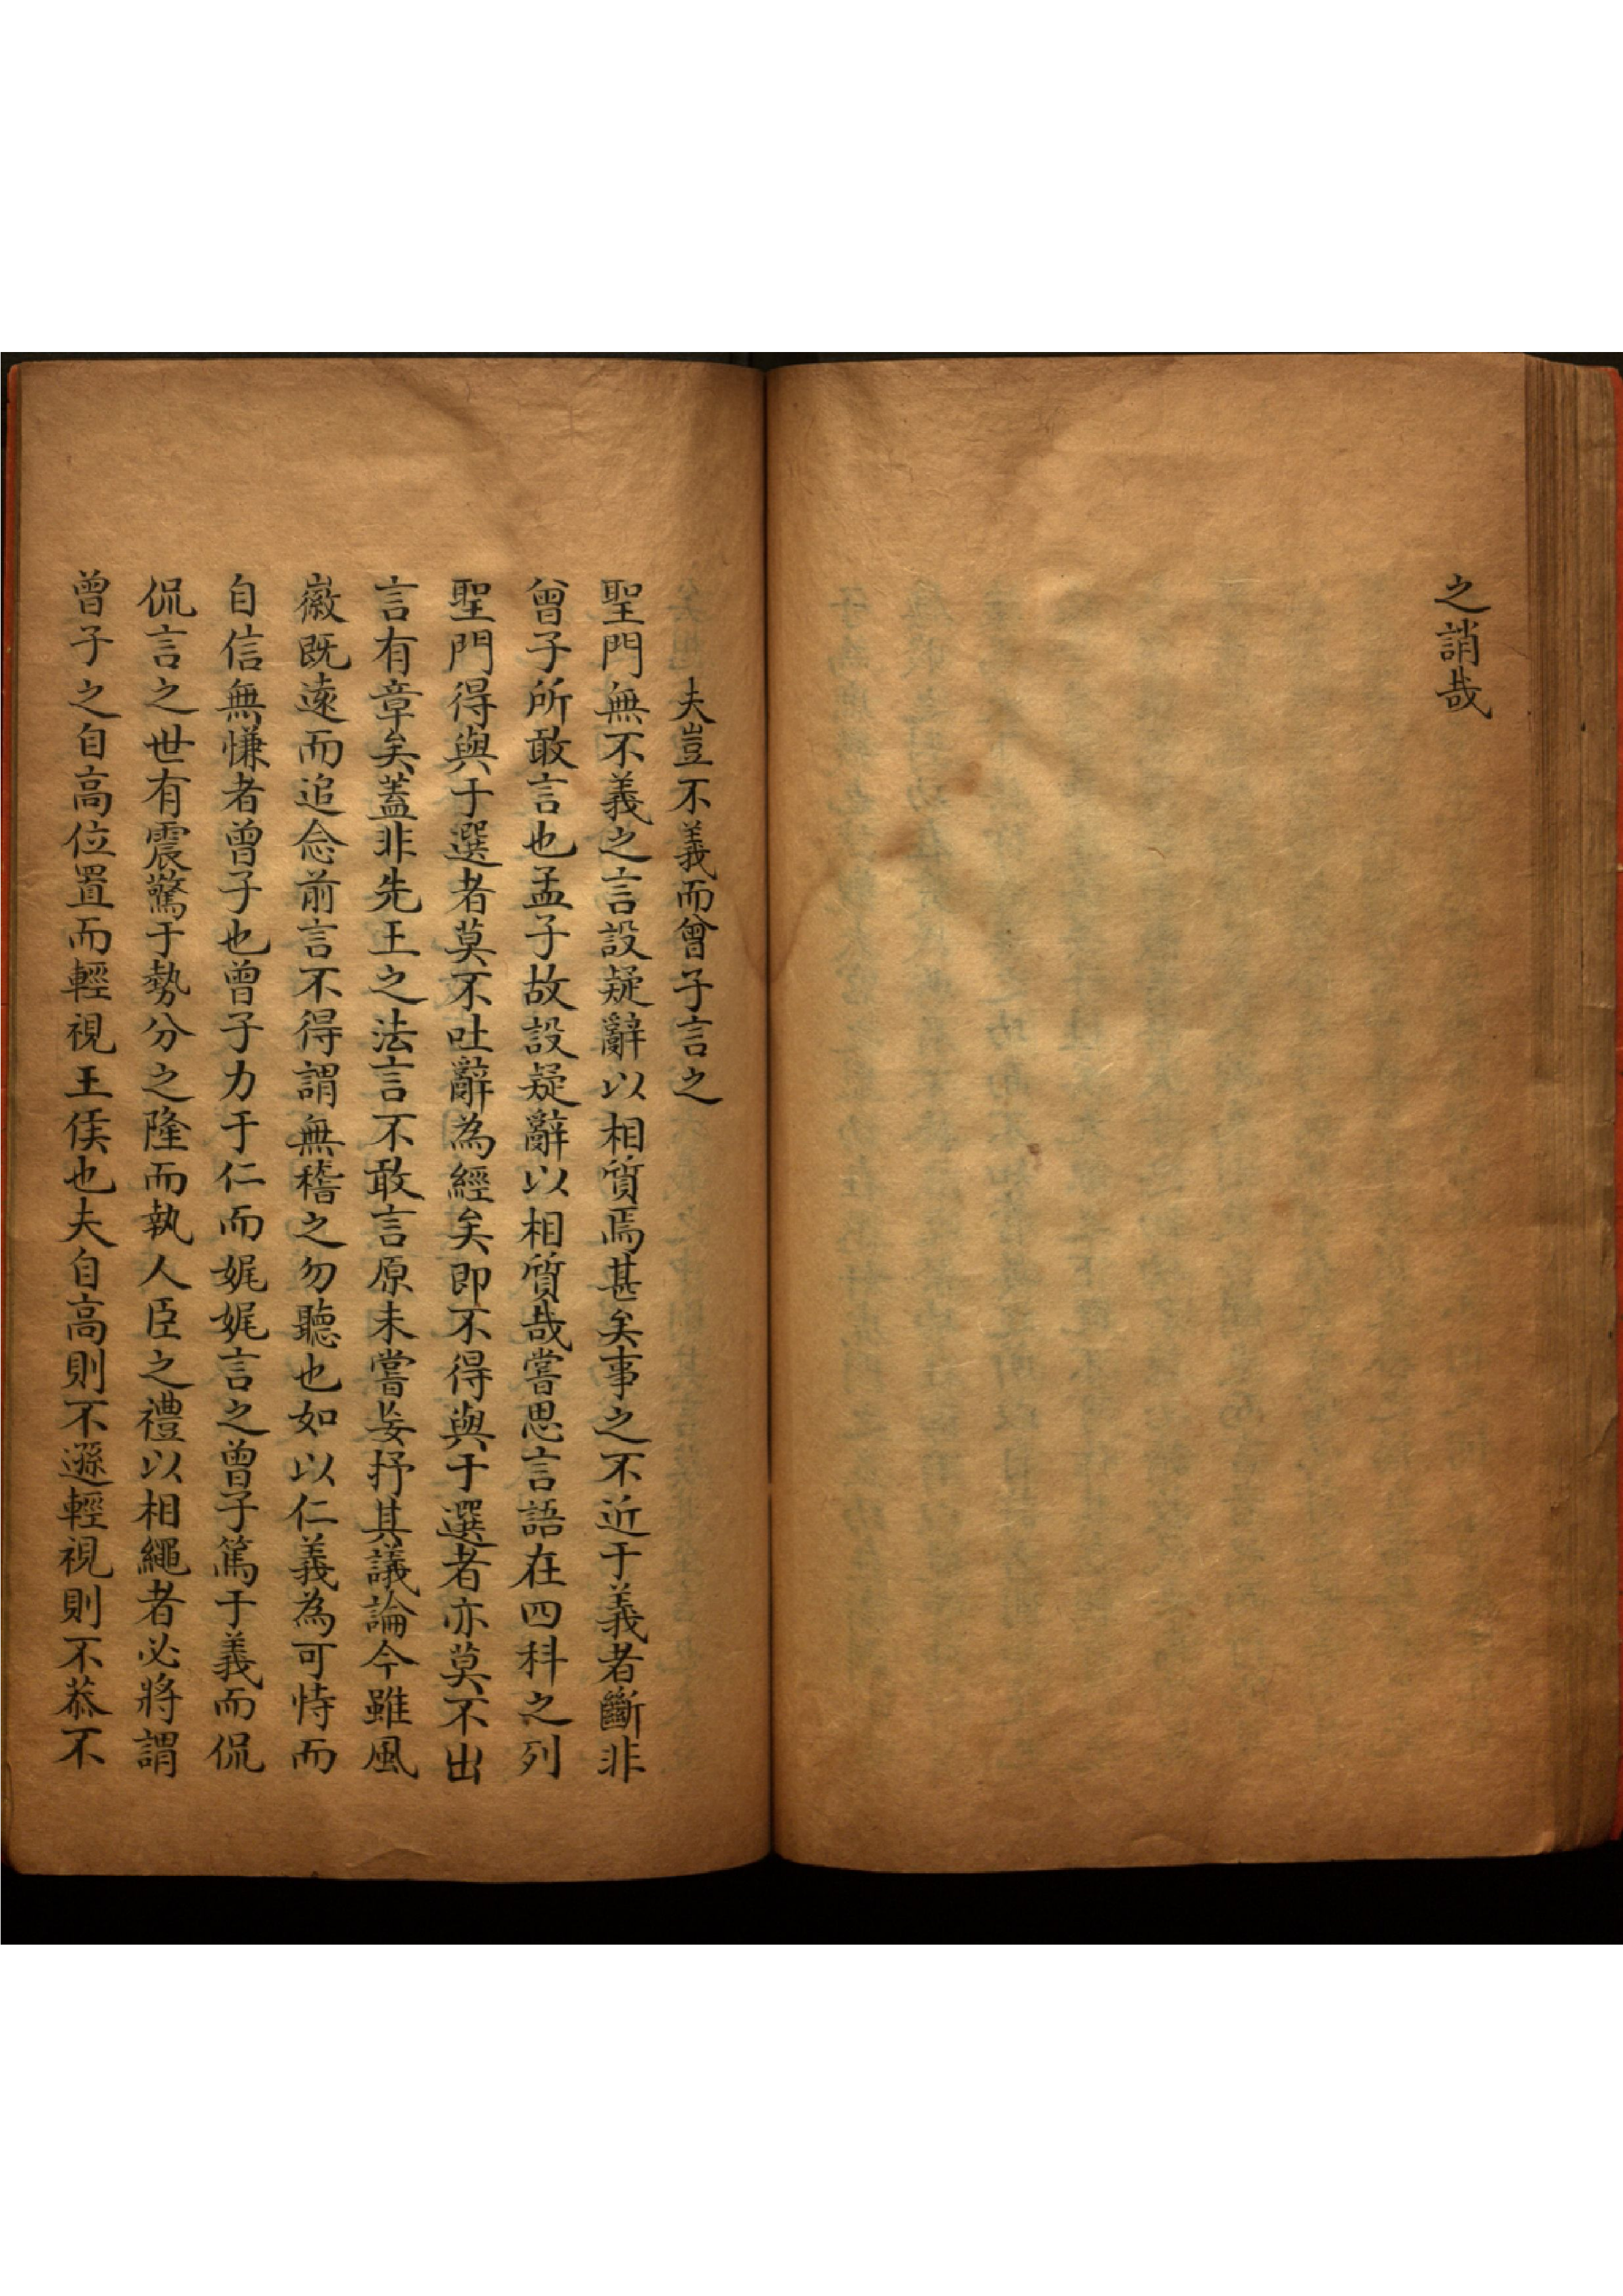 之誚哉
夫豈不義而曾子言之
聖門無不義之言設疑辭以相質焉甚矣事之不近于義者斷非
曾子所敢言也孟子故設疑辭以相質哉嘗思言語在四科之列
聖門得與于選者莫不吐辭為經矣即不得與于選者亦莫不出
言有章矣蓋非先王之法言不敢言原未嘗妄抒其議論今雖風
徽既遠而追念前言不得謂無稽之勿聽也如以仁義為可恃而
自信無慊者曾子也曾子力于仁而娓娓言之曾子篤于義而侃
侃言之世有震驚于勢分之隆而執人臣之禮以相繩者必將謂
曾子之自高位置而輕視王侯也夫自高則不遜輕視則不恭不